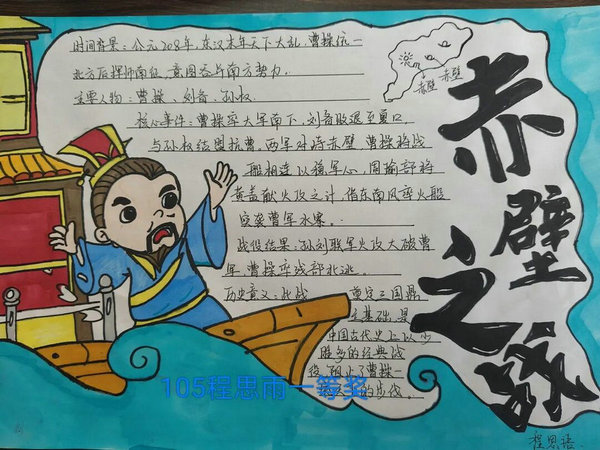 时间背景：公元208年，东汉末年天下大乱，曹操统一
北方后挥师南征，意图吞并南方势力。
主要人物：曹操、刘备、孙权.
核心事件：曹操率大军南下，刘备败退至夏口，
与孙权结盟抗曹。两军对峙赤壁，曹操将战
船相连以稳军心，周瑜部将
黄盖献火攻之计，借东南风率火船
突袭曹军水寨。
战役结果：孙刘联军火攻大破曹
军，曹操率残部北逃。
历史意义：此战
奠定三国鼎
立基础，是
中国古代史上以少
胜多的经典战
役，阻止了曹操一
的步伐.
赤壁 赤壁
赤壁之战
105程思雨一等奖
程思语.